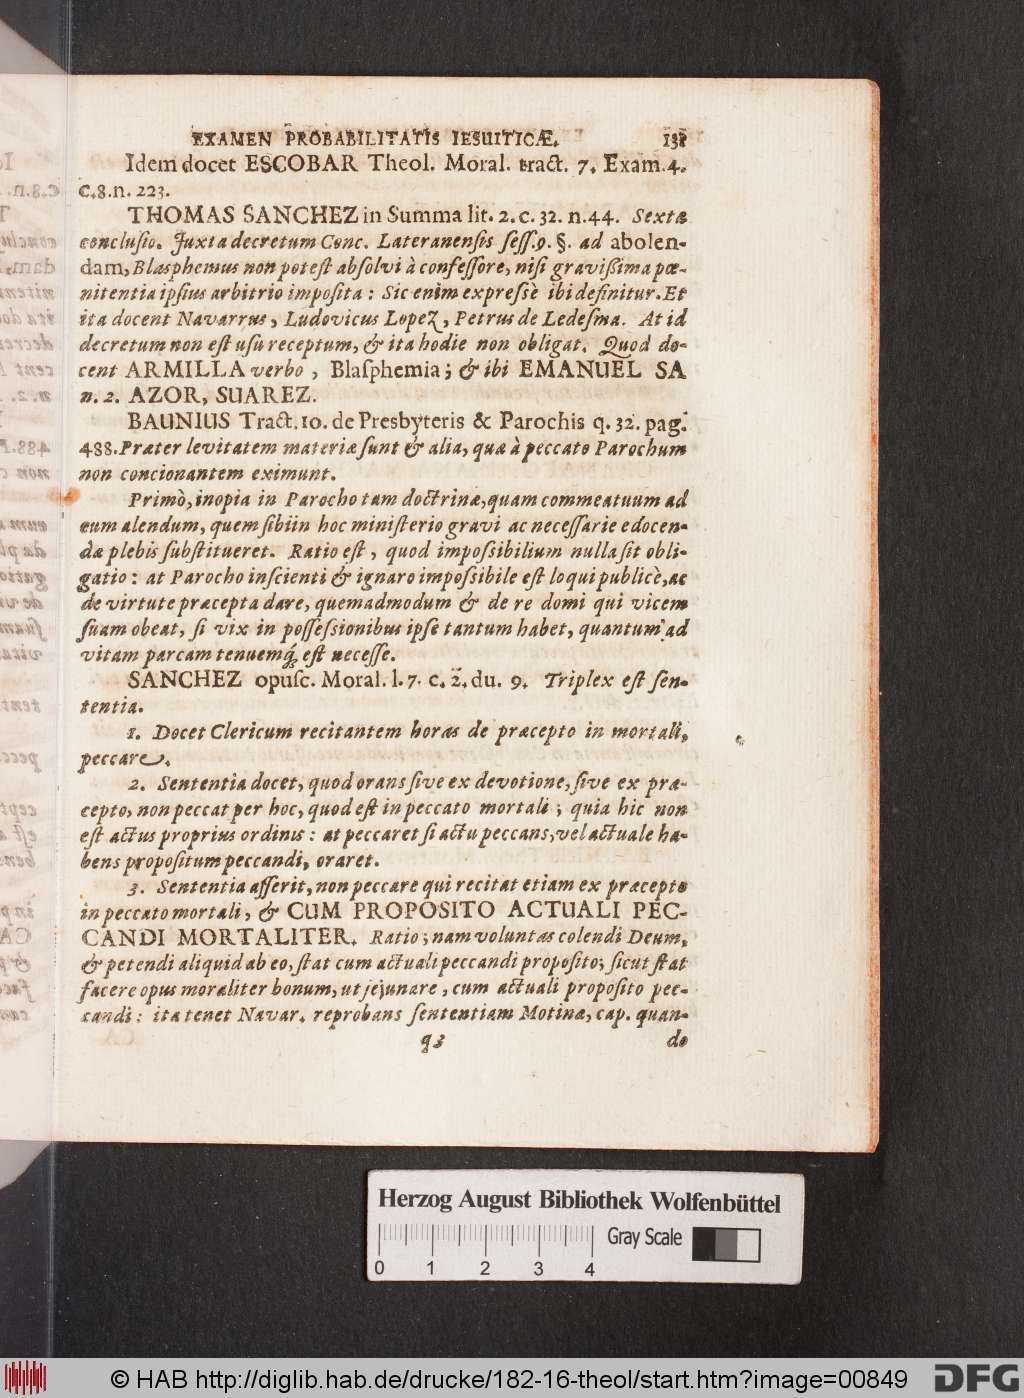 EXAMEN PROBABILITATIS IESUITICÆ. 131
Idem docet ESCOBAR Theol. Moral. tract. 7. Exam. 4.
c. 8. n. 223.
THOMAS SANCHEZ in Summa lit. 2. c. 32. n. 44. Sexta
conclusio. Juxta decretum Conc. Lateranensis seſſ. 9. §. ad abolen-
dam, Blaſphemus non poteſt abſolvi à confeſſore, niſi graviſſima pœ-
nitentia ipſius arbitrio impoſita : Sic enim expreſsè ibi definitur. Et
ita docent Navarrus, Ludovicus Lopez, Petrus de Ledeſma. At id
decretum non eſt uſu receptum, & ita hodie non obligat. Quod do-
cent ARMILLA verbo, Blaſphemia; & ibi EMANUEL SA
n. 2. AZOR, SUAREZ.
BAUNIUS Tract. 10. de Presbyteris & Parochis q. 32. pag.
488. Præter levitatem materiæ ſunt & alia, quæ à peccato Parochum
non concionantem eximunt.
Primò, inopia in Parocho tam doctrinæ, quam commeatuum ad
eum alendum, quem ſibi in hoc miniſterio gravi ac neceſſarie edocen-
dæ plebis ſubſtitueret. Ratio eſt, quod impoſsibilium nulla ſit obli-
gatio : at Parocho inſcienti & ignaro impoſsibile eſt loqui publicè, ac
de virtute præcepta dare, quemadmodum & de re domi qui vicem
ſuam obeat, ſi vix in poſſeſsionibus ipſe tantum habet, quantum ad
vitam parcam tenuemq́; eſt neceſſe.
SANCHEZ opuſc. Moral. l. 7. c. 2. du. 9. Triplex eſt ſen-
tentia.
1. Docet Clericum recitantem horas de præcepto in mortali,
peccare.
2. Sententia docet, quod orans ſive ex devotione, ſive ex præ-
cepto, non peccat per hoc, quod eſt in peccato mortali ; quia hic non
eſt actus proprius ordinis : at peccaret ſi actu peccans, vel actuale ha-
bens propoſitum peccandi, oraret.
3. Sententia aſſerit, non peccare qui recitat etiam ex præcepto
in peccato mortali, & CUM PROPOSITO ACTUALI PEC-
CANDI MORTALITER. Ratio; nam voluntas colendi Deum,
& petendi aliquid ab eo, ſtat cum actuali peccandi propoſito; ſicut ſtat
facere opus moraliter bonum, ut jejunare, cum actuali propoſito pec-
candi : ita tenet Navar. reprobans ſententiam Motinæ, cap. quan-
q 3 do
Herzog August Bibliothek Wolfenbüttel
Gray Scale
0 1 2 3 4
© HAB http://diglib.hab.de/drucke/182-16-theol/start.htm?image=00849 DFG